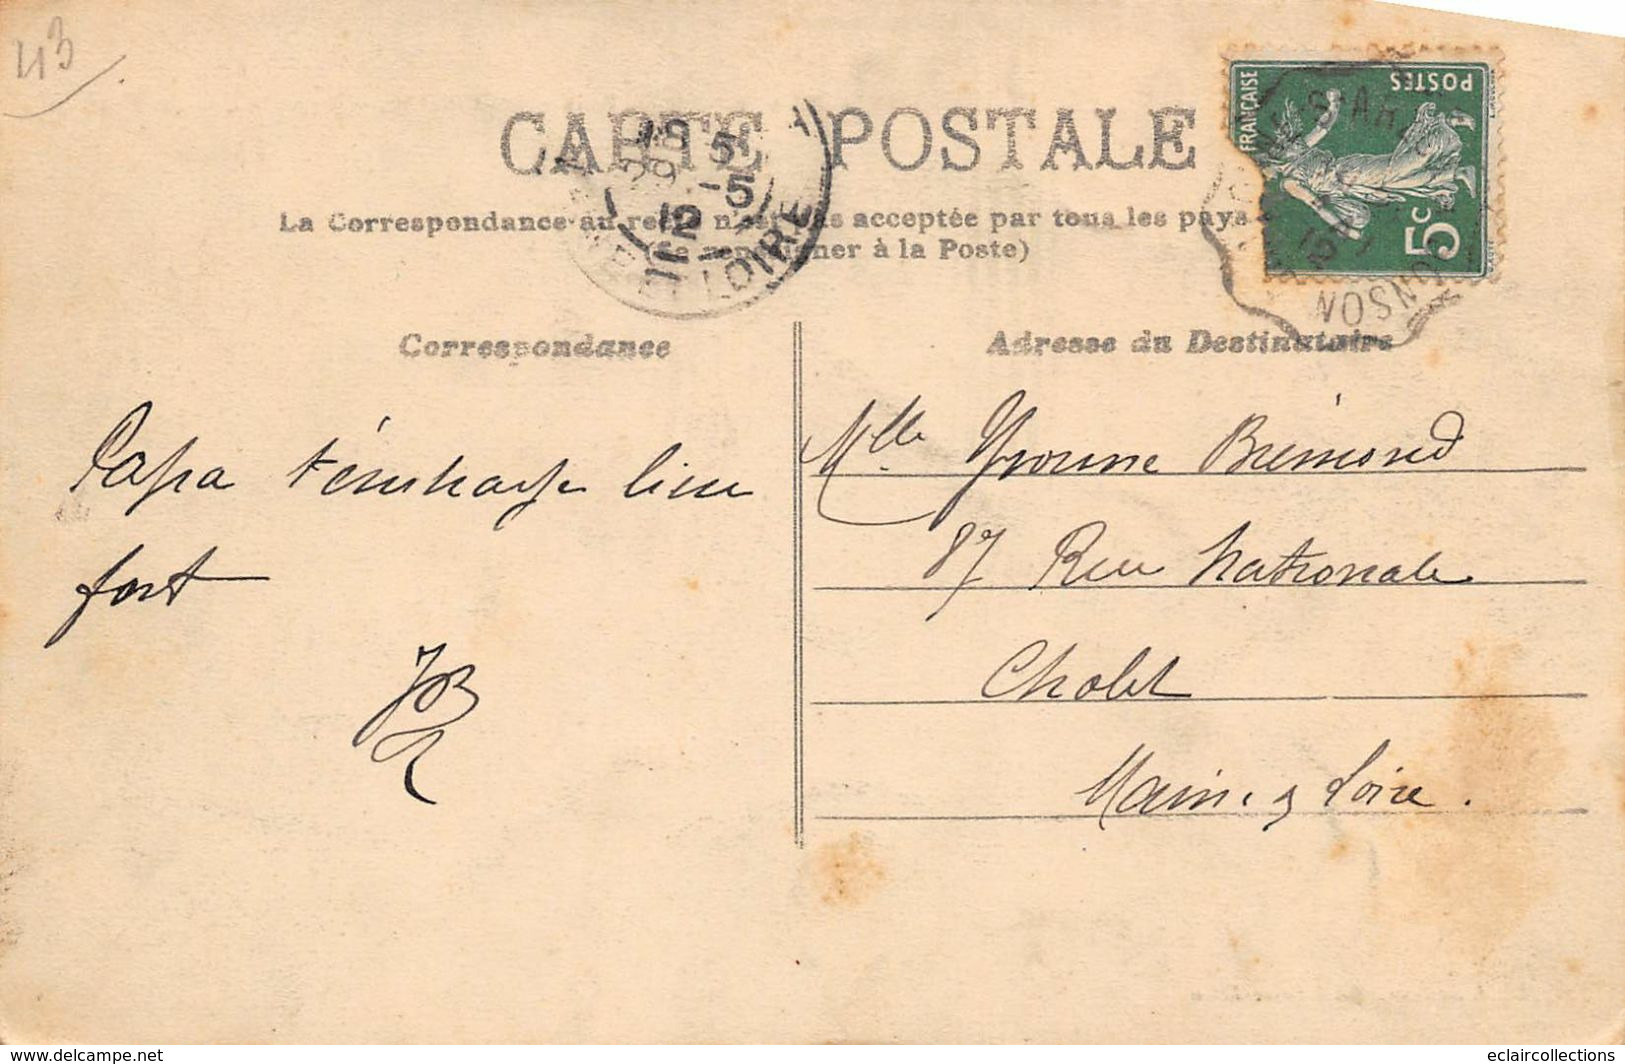 43
CARTE POSTALE
La Correspondance au n'est pas acceptée par tous les pays
(Se renseigner à la Poste)
FRANÇAISE
POSTES
5c
ET LOIRE
Correspondance
Adresse du Destinataire
Papa t'embrasse bien
fort
Mlle Yvonne Brémond
87 Rue Nationale
Cholet
Maine & Loire.
www.delcampe.net
eclaircollections